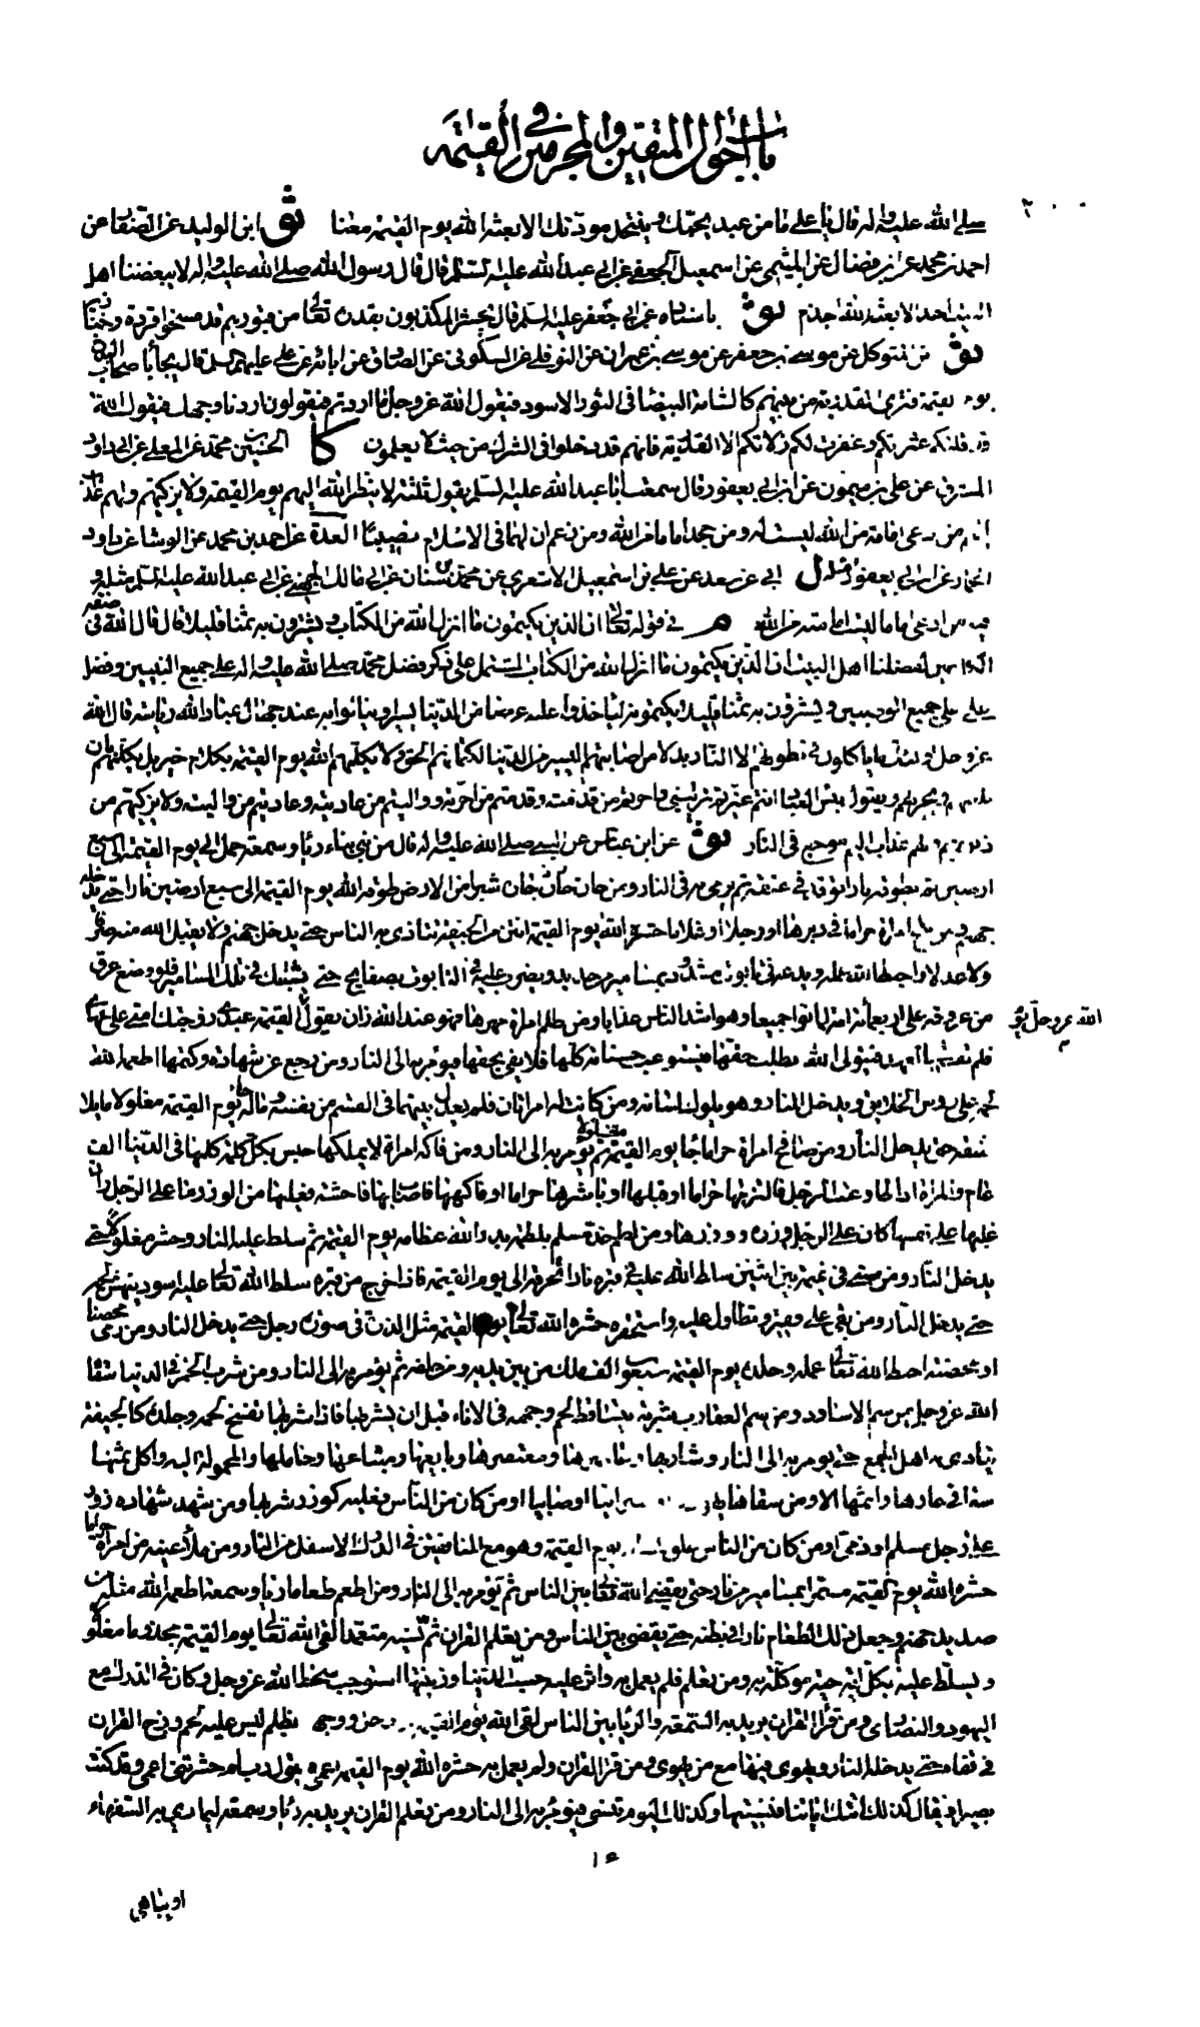 باب أحوال المتقين والمجرمين في القيٰمة
٢٠٠
صلى الله عليه واله قال يا علي ما من عبد يحبك وينتحل مودتك الا بعثه الله يوم القيمة معنا ثو ابن الوليد عن الصفار عن
احمد بن محمد عن ابن فضال عن الميثمي عن اسمعيل الجعفي عن ابي عبد الله عليه السلم قال قال رسول الله صلى الله عليه واله لا يبغضنا اهل
البيت احد الا بعثه الله اجذم ثو باسناده عن ابي جعفر عليه السلم قال يحشر المكذبون بقدره تعالى من قبورهم قد مسخوا قردة وخنازير
ثو ابن المتوكل عن موسى بن جعفر عن موسى بن عمران عن النوفلي عن السكوني عن الصادق عن ابائه عن علي عليهم السلم قال يجاء باصحاب البدع
يوم القيمة فترى القدرية من بينهم كالشامة البيضا في الثور الاسود فيقول الله عز وجل ما اردتم فيقولون اردنا وجهك فيقول الله
قد اقلتكم عثراتكم وغفرت لكم زلاتكم الا القدرية فانهم قد دخلوا في الشرك من حيث لا يعلمون كا الحسين بن محمد عن المعلى عن ابي داود
المسترق عن علي بن ميمون عن ابن ابي يعفور قال سمعت ابا عبد الله عليه السلم يقول ثلثة لا ينظر الله اليهم يوم القيمة ولا يزكيهم ولهم عذاب
اليم من ادعى امامة من الله ليست له ومن جحد اماما من الله ومن زعم ان لهما في الاسلام نصيبا العدة عن احمد بن محمد عن الوشا عن داود
الحمار عن ابن ابي يعفور مثله ل ابي عن سعد عن علي بن اسمعيل الاشعري عن محمد بن سنان عن ابي مالك الجهني عن ابي عبد الله عليه السلم مثله و
فيه من ادعى اماما ليست امامته من الله م في قوله تعالى ان الذين يكتمون ما انزل الله من الكتاب ويشترون به ثمنا قليلا قال قال الله في صفة
الكاتمين لفضلنا اهل البيت ان الذين يكتمون ما انزل الله من الكتاب المشتمل على ذكر فضل محمد صلى الله عليه واله على جميع النبيين وفضل
علي على جميع الوصيين ويشترون به ثمنا قليلا يكتمونه ليأخذوا عليه عرضا من الدنيا يسيرا وينالوا به عند جهال عباد الله رياسة قال الله
عز وجل اولئك ما يأكلون في بطونهم الا النار بدلا من اصابتهم اليسير من الدنيا لكتمانهم الحق ولا يكلمهم الله يوم القيمة بكلام خير بل يكلمهم بان
يلعنهم ويخزيهم ويقول بئس العباد انتم غيرتم ترتيبي واخرتم من قدمت وقدمتم من اخرته وواليتم من عاديته وعاديتم من واليت ولا يزكيهم من
ذنوبهم ولهم عذاب اليم موجع في النار ثو عن ابن عباس عن النبي صلى الله عليه واله قال من بنى بناء رياء وسمعة حمل الى يوم القيمة الى سبع
ارضين ثم يطوقه نارا توقد في عنقه ثم يرمى به في النار ومن خان جاره شبرا من الارض طوقه الله يوم القيمة الى سبع ارضين نارا حتى يدخله
جهنم ومن نكح امراة حراما في دبرها او رجلا او غلاما حشره الله يوم القيمة انتن من الجيفة تتاذى به الناس حتى يدخل جهنم ولا يقبل الله منه صرفا
ولا عدلا واحبط الله عمله ويدعه في تابوت مشدود بمسامير من حديد ويضرب عليه في التابوت بصفايح حتى يشتبك في تلك المسامير فلو وضع عرق
من عروقه على اربعمائة امة لماتوا جميعا وهو اشد الناس عذابا ومن ظلم امراة مهرها فهو عند الله زان يقول يوم القيمة عبدي زوجتك امتي على عهدي
الله عز وجل يو
فلم تف لي بالعهد فيتولى الله طلب حقها فيستوعب حسناته كلها فلا يفي بحقها فيؤمر به الى النار ومن رجع عن شهادة وكتمها اطعمه الله
لحمه على رؤس الخلايق ويدخل النار وهو يلوك لسانه ومن كانت له امراتان فلم يعدل بينهما في القسم من نفسه وماله جاء يوم القيمة مغلولا مايلا
شقه حتى يدخل النار ومن صافح امراة حراما جاء يوم القيمة مغلولا ثم يؤمر به الى النار ومن فاكه امراة لا يملكها حبس بكل كلمة كلمها في الدنيا الف
عام والمراة اذا طاوعت الرجل فالتزمها حراما او قبلها او باشرها حراما او فاكهها فاصاب بها فاحشة فعليها من الوزر ما على الرجل وان
غلبها على نفسها كان على الرجل وزره ووزرها ومن لطم خد مسلم بلطمة بدد الله عظامه يوم القيمة ثم سلط عليه النار وحشر مغلولا حتى
يدخل النار ومن مشى في نميمة بين اثنين سلط الله عليه في قبره نارا تحرقه الى يوم القيمة فاذا خرج من قبره سلط الله تعالى عليه اسود ينهش لحمه
حتى يدخل النار ومن بغى على فقير وتطاول عليه واستحقره حشره الله تعالى يوم القيمة مثل الذرة في صورة رجل حتى يدخل النار ومن رمى محصنا
او محصنة احبط الله تعالى عمله وجلده يوم القيمة سبعون الف ملك من بين يديه ومن خلفه ثم يؤمر به الى النار ومن شرب الخمر في الدنيا سقاه
الله عز وجل من سم الاساود ومن سم العقارب شربة يتساقط لحم وجهه في الاناء قبل ان يشربها فاذا شربها تفسخ لحمه وجلده كالجيفة
يتاذى به اهل الجمع حتى يؤمر به الى النار وشاربها وعاصرها ومعتصرها وبايعها ومبتاعها وحاملها والمحمولة اليه واكل ثمنها
سواء في عارها واثمها الا ومن سقاها يهوديا او نصرانيا او صابيا او من كان من الناس فعليه كوزر شربها ومن شهد شهادة زور
على رجل مسلم او ذمي او من كان من الناس علق بلسانه يوم القيمة وهو مع المنافقين في الدرك الاسفل من النار ومن ملأ عينه من امراة حراما
حشره الله يوم القيمة مسمرا بمسامير من نار حتى يقضي الله تعالى بين الناس ثم يؤمر به الى النار ومن اطعم طعاما رياء وسمعة اطعمه الله مثله من
صديد جهنم وجعل ذلك الطعام نارا في بطنه حتى يقضى بين الناس ومن تعلم القران ثم نسيه متعمدا لقي الله تعالى يوم القيمة مجذوما مغلولا
ويسلط عليه بكل اية حية موكلة به ومن تعلم فلم يعمل به واثر عليه حب الدنيا وزينتها استوجب سخط الله عز وجل وكان في الدرك مع
اليهود والنصارى ومن قرأ القران يريد به السمعة والريا بين الناس لقي الله يوم القيمة ووجهه مظلم ليس عليه لحم وزج القران
في قفاه حتى يدخله النار ويهوي فيها مع من يهوي ومن قرا القران ولم يعمل به حشره الله يوم القيمة اعمى يقول رب لم حشرتني اعمى وقد كنت
بصيرا فيقال كذلك اتتك اياتنا فنسيتها وكذلك اليوم تنسى فيؤمر به الى النار ومن تعلم القران يريد به رياء وسمعة ليماري به السفهاء
١٤
او يباهي